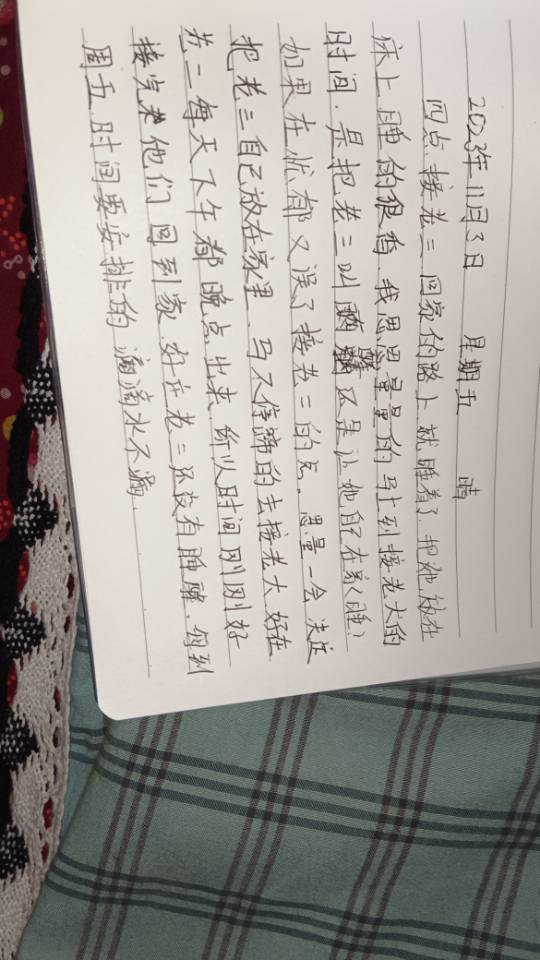 2023年11月3日 星期五 晴
四点接老三回家的路上就睡着了.把她放在
床上睡的很香.我思思量量的马上到接老大的
时间.是把老三叫醒还是让她自己在家(睡)
如果在忙都又误了接老二的点。思量一会决定
把老三自己放在家里.马不停蹄的去接老大好在
老二每天下午都晚点出来.所以时间刚刚好
接完老他们回到家.好在老三还没有睡醒.每到
周五时间要安排的滴滴水不漏.